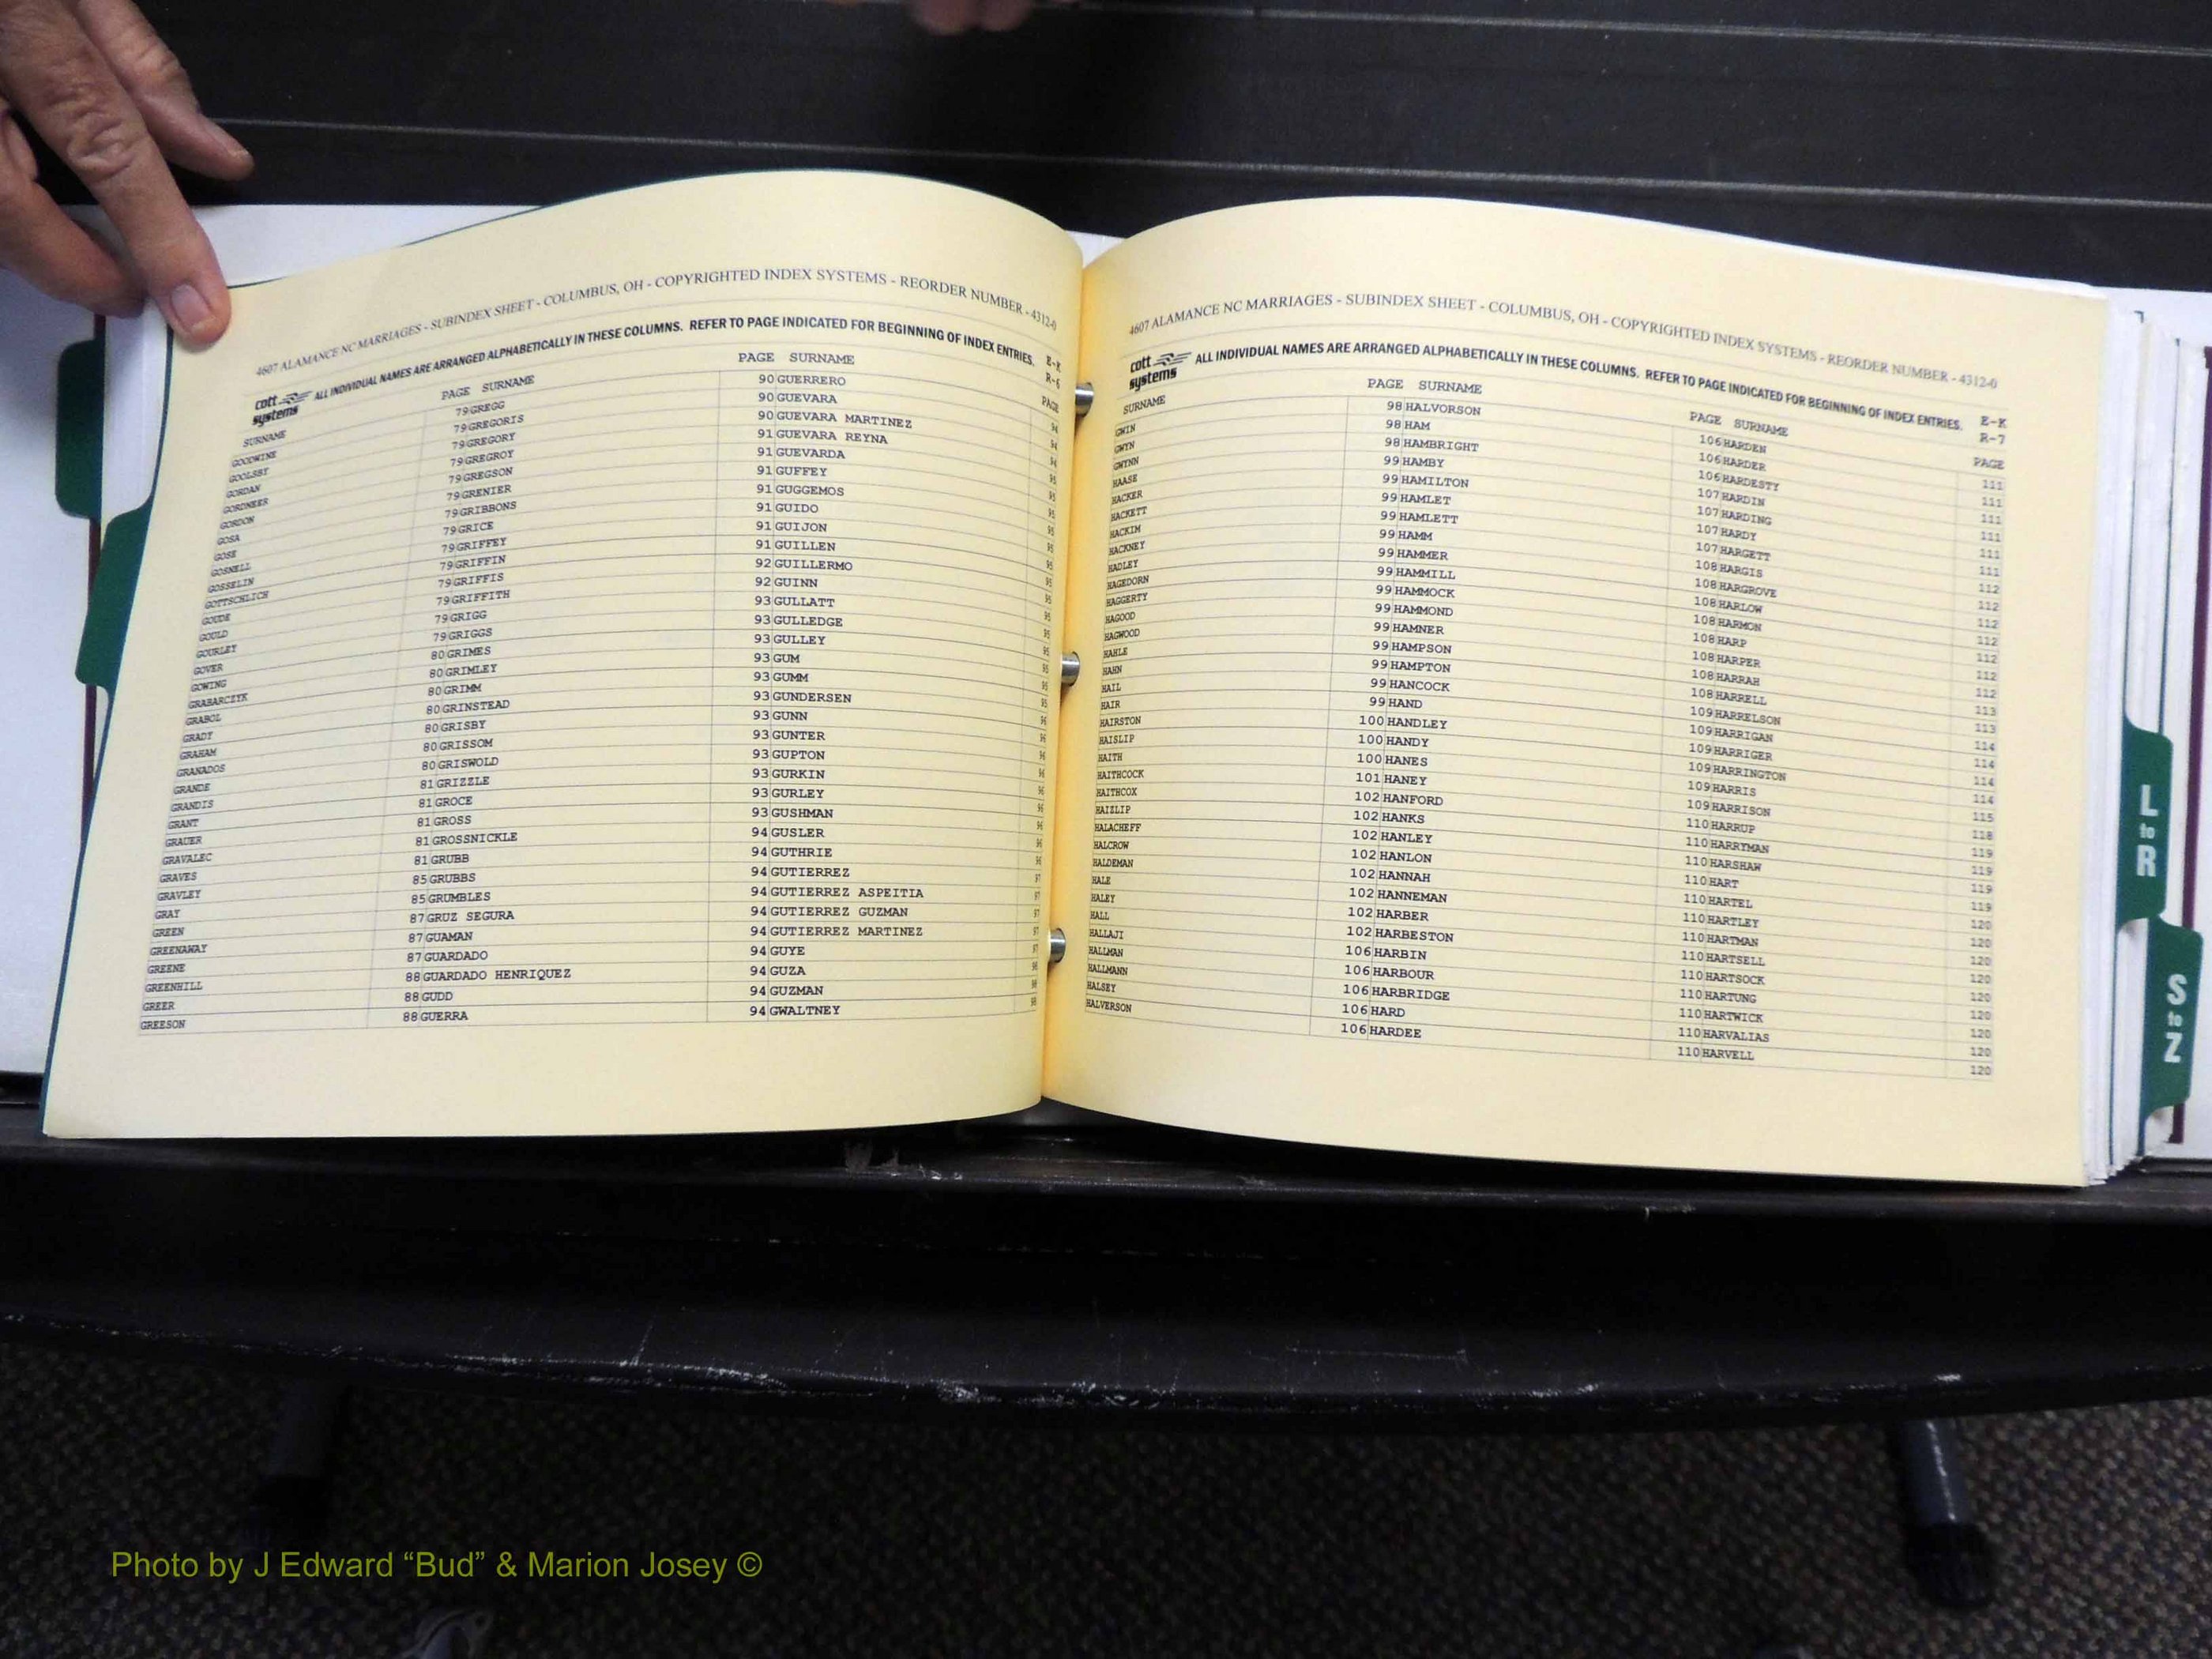 4607 ALAMANCE NC MARRIAGES - SUBINDEX SHEET - COLUMBUS, OH - COPYRIGHTED INDEX SYSTEMS - REORDER NUMBER - 4312-0
cott systems ALL INDIVIDUAL NAMES ARE ARRANGED ALPHABETICALLY IN THESE COLUMNS. REFER TO PAGE INDICATED FOR BEGINNING OF INDEX ENTRIES. E-K R-6
SURNAME PAGE SURNAME PAGE SURNAME PAGE
GOODWINE 79 GREGG 90 GUERRERO 94
GOOLSBY 79 GREGORIS 90 GUEVARA 94
GORDAN 79 GREGORY 90 GUEVARA MARTINEZ 94
GORDNEER 79 GREGROY 91 GUEVARA REYNA 95
GORDON 79 GREGSON 91 GUEVARDA 95
GOSA 79 GRENIER 91 GUFFEY 95
GOSE 79 GRIBBONS 91 GUGGEMOS 95
GOSNELL 79 GRICE 91 GUIDO 95
GOSSELIN 79 GRIFFEY 91 GUIJON 95
GOTTSCHLICH 79 GRIFFIN 91 GUILLEN 95
GOUDE 79 GRIFFIS 92 GUILLERMO 95
GOULD 79 GRIFFITH 92 GUINN 95
GOURLEY 79 GRIGG 93 GULLATT 95
GOVER 79 GRIGGS 93 GULLEDGE 95
GOWING 80 GRIMES 93 GULLEY 95
GRABARCZYK 80 GRIMLEY 93 GUM 95
GRABOL 80 GRIMM 93 GUMM 95
GRADY 80 GRINSTEAD 93 GUNDERSEN 96
GRAHAM 80 GRISBY 93 GUNN 96
GRANADOS 80 GRISSOM 93 GUNTER 96
GRANDE 80 GRISWOLD 93 GUPTON 96
GRANDIS 81 GRIZZLE 93 GURKIN 96
GRANT 81 GROCE 93 GURLEY 96
GRAUER 81 GROSS 93 GUSHMAN 96
GRAVALEC 81 GROSSNICKLE 94 GUSLER 96
GRAVES 81 GRUBB 94 GUTHRIE 96
GRAVLEY 85 GRUBBS 94 GUTIERREZ 97
GRAY 85 GRUMBLES 94 GUTIERREZ ASPEITIA 97
GREEN 87 GRUZ SEGURA 94 GUTIERREZ GUZMAN 97
GREENAWAY 87 GUAMAN 94 GUTIERREZ MARTINEZ 97
GREENE 87 GUARDADO 94 GUYE 97
GREENHILL 88 GUARDADO HENRIQUEZ 94 GUZA 98
GREER 88 GUDD 94 GUZMAN 98
GREESON 88 GUERRA 94 GWALTNEY 98
4607 ALAMANCE NC MARRIAGES - SUBINDEX SHEET - COLUMBUS, OH - COPYRIGHTED INDEX SYSTEMS - REORDER NUMBER - 4312-0
cott systems ALL INDIVIDUAL NAMES ARE ARRANGED ALPHABETICALLY IN THESE COLUMNS. REFER TO PAGE INDICATED FOR BEGINNING OF INDEX ENTRIES. E-K R-7
SURNAME PAGE SURNAME PAGE SURNAME PAGE
GWIN 98 HALVORSON 106 HARDEN 111
GWYN 98 HAM 106 HARDER 111
GWYNN 98 HAMBRIGHT 106 HARDESTY 111
HAASE 99 HAMBY 107 HARDIN 111
HACKER 99 HAMILTON 107 HARDING 111
HACKETT 99 HAMLET 107 HARDY 111
HACKIM 99 HAMLETT 107 HARGETT 112
HACKNEY 99 HAMM 108 HARGIS 112
HADLEY 99 HAMMER 108 HARGROVE 112
HAGEDORN 99 HAMMILL 108 HARLOW 112
HAGGERTY 99 HAMMOCK 108 HARMON 112
HAGOOD 99 HAMMOND 108 HARP 112
HAGWOOD 99 HAMNER 108 HARPER 112
HAHLE 99 HAMPSON 108 HARRAH 113
HAHN 99 HAMPTON 108 HARRELL 113
HAIL 99 HANCOCK 109 HARRELSON 114
HAIR 99 HAND 109 HARRIGAN 114
HAIRSTON 100 HANDLEY 109 HARRIGER 114
HAISLIP 100 HANDY 109 HARRINGTON 114
HAITH 100 HANES 109 HARRIS 115
HAITHCOCK 101 HANEY 109 HARRISON 118
HAITHCOX 102 HANFORD 110 HARRUP 119
HAIZLIP 102 HANKS 110 HARRYMAN 119
HALACHEFF 102 HANLEY 110 HARSHAW 119
HALCROW 102 HANLON 110 HART 119
HALDEMAN 102 HANNAH 110 HARTEL 120
HALE 102 HANNEMAN 110 HARTLEY 120
HALEY 102 HARBER 110 HARTMAN 120
HALL 102 HARBESTON 110 HARTSELL 120
HALLAJI 106 HARBIN 110 HARTSOCK 120
HALLMAN 106 HARBOUR 110 HARTUNG 120
HALLMANN 106 HARBRIDGE 110 HARTWICK 120
HALSEY 106 HARD 110 HARVALIAS 120
HALVERSON 106 HARDEE 110 HARVELL 120
L to R
S to Z
Photo by J Edward “Bud” & Marion Josey ©